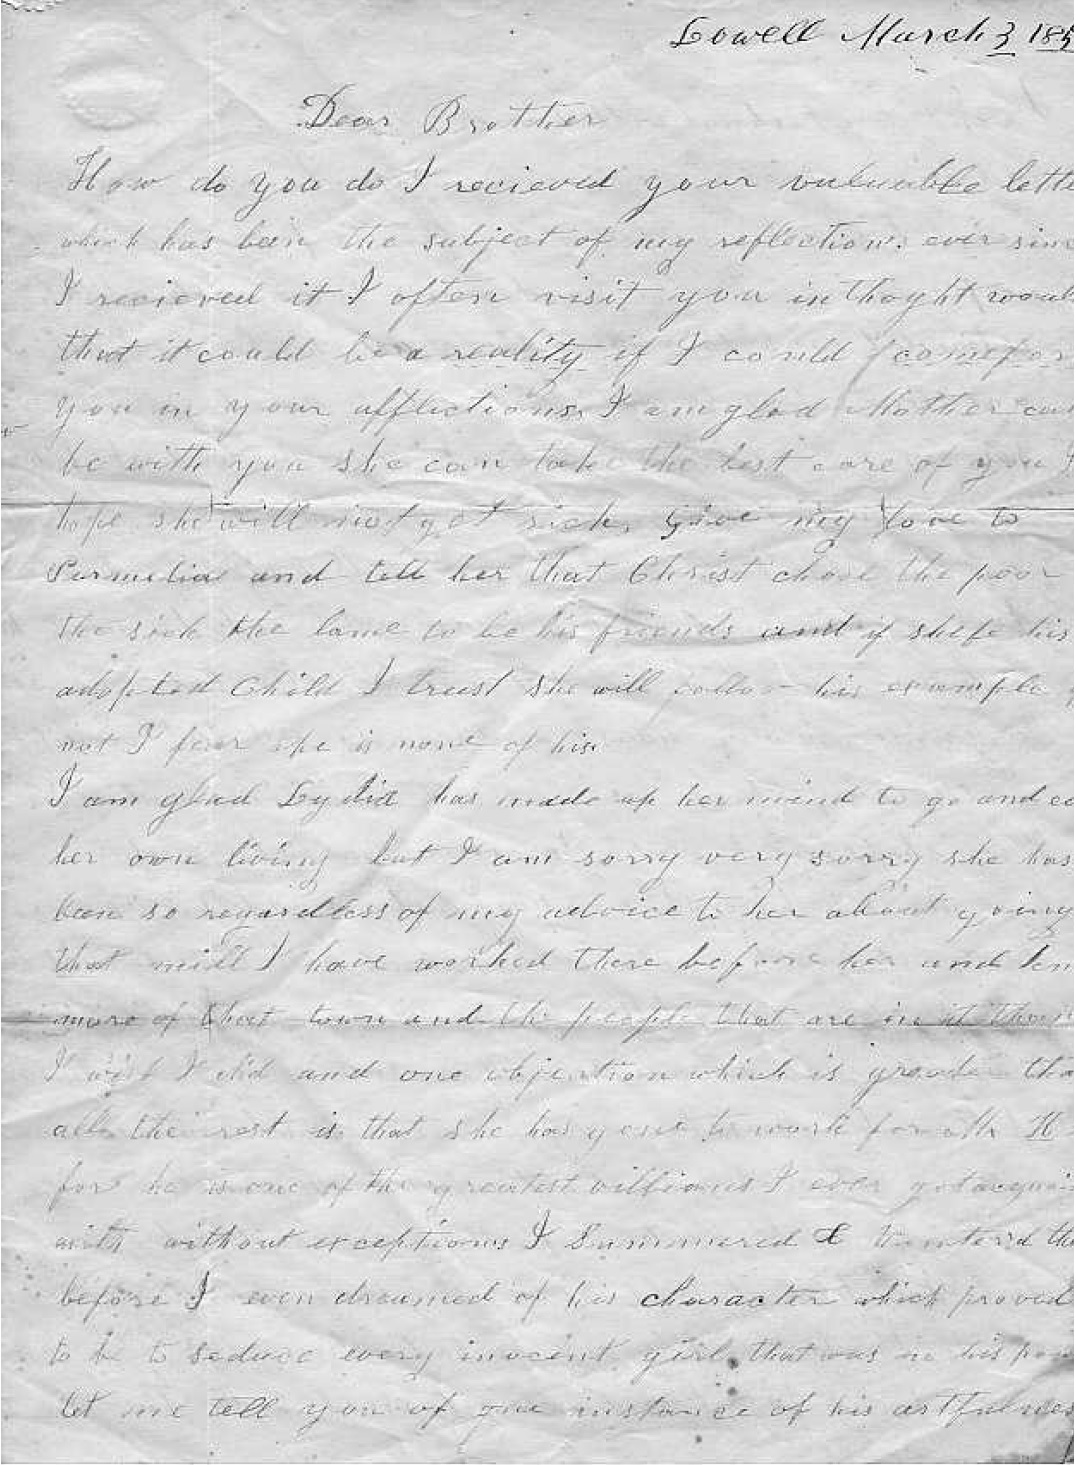 Lowell March 3 185
Dear Brother
How do you do I recieved your valuable lette
which has been the subject of my reflections ever sinc
I recieved it I often visit you in thoght woul
that it could be a reality if I could comfor
you in your afflictions. I am glad Mother can
be with you she can take the best care of you I
hope she will not get sick. give my love to
Permelia and tell her that Christ chose the poor
the sick the lame to be his friends and if she is his
adopted Child I trust she will follow his example
not I fear she is none of his.
I am glad Lydia has made up her mind to go and ea
her own living but I am sorry very sorry she has
been so regardless of my advice to her about going
that mill I have worked there before her and kn
more of that town and the people that are in it than
I wish I did and one objection which is greater tha
all the rest is that she has gone to work for Mr H
for he is one of the greatest villians I ever got acquai
with without exceptions I Summered & Wintered the
before I even dreamed of his character which proved
to be to seduce every inocent girl that was in his pow
let me tell you of one instance of his artfulnes